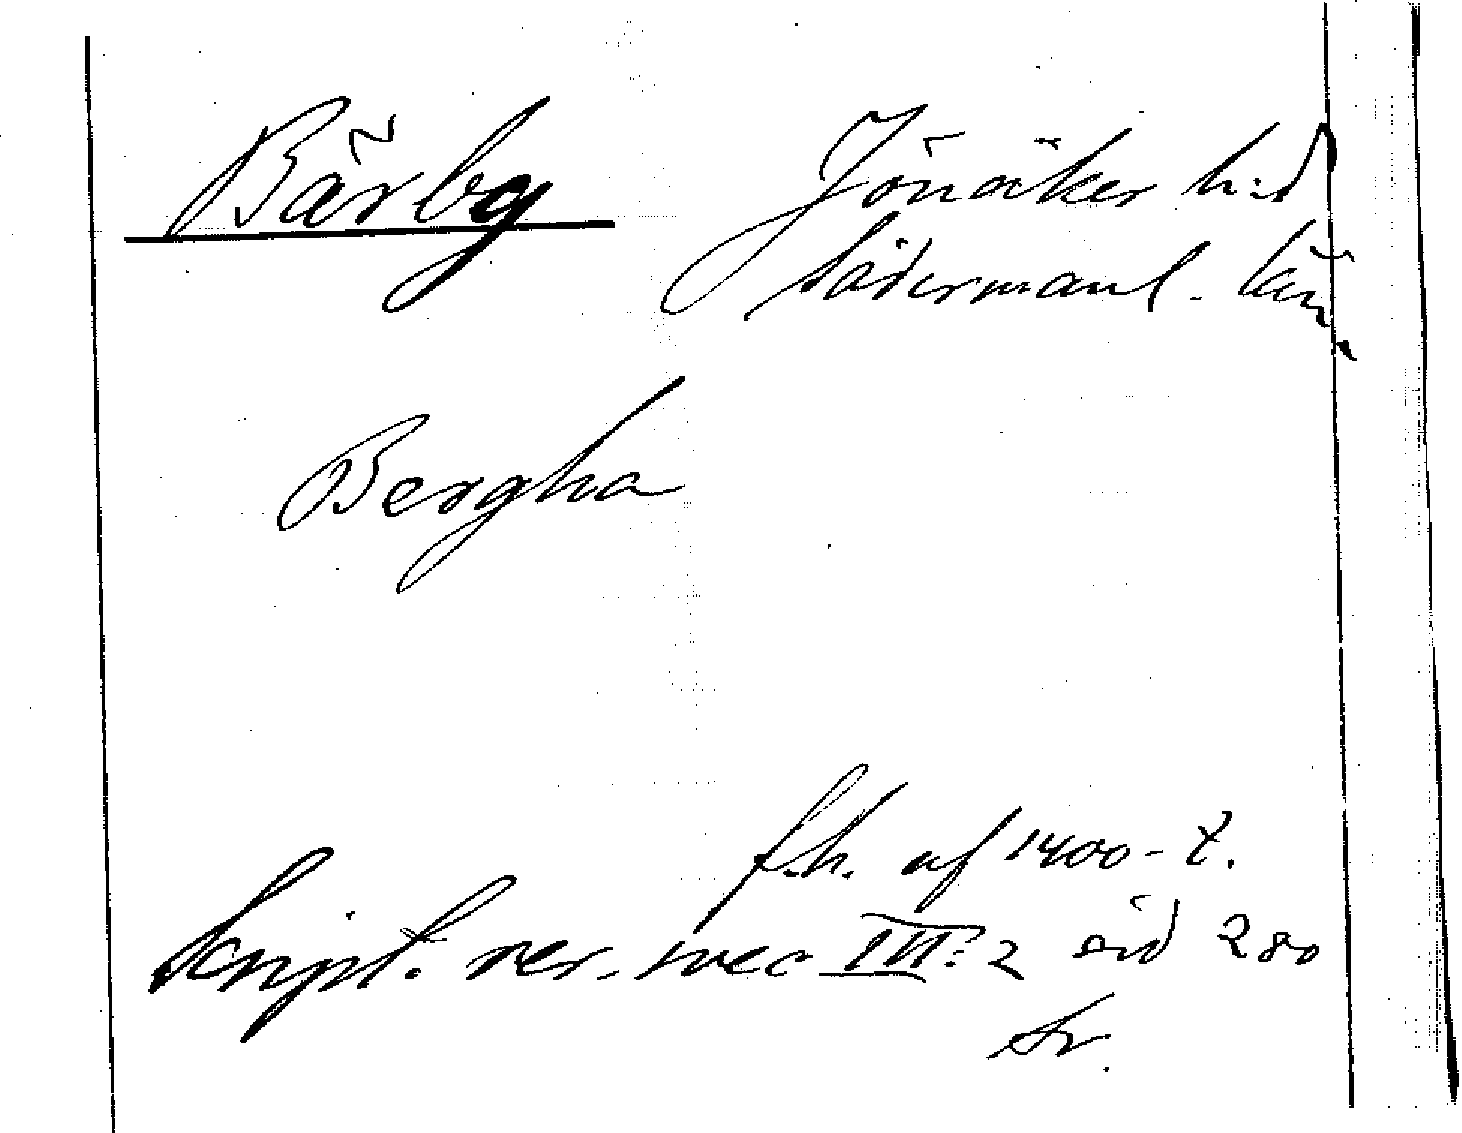 Bärby Jönåker h:d
Södermanl. län
Bergha
f.h. af 1400-t.
Script. rer. svec III:2 sid 280
Sv.